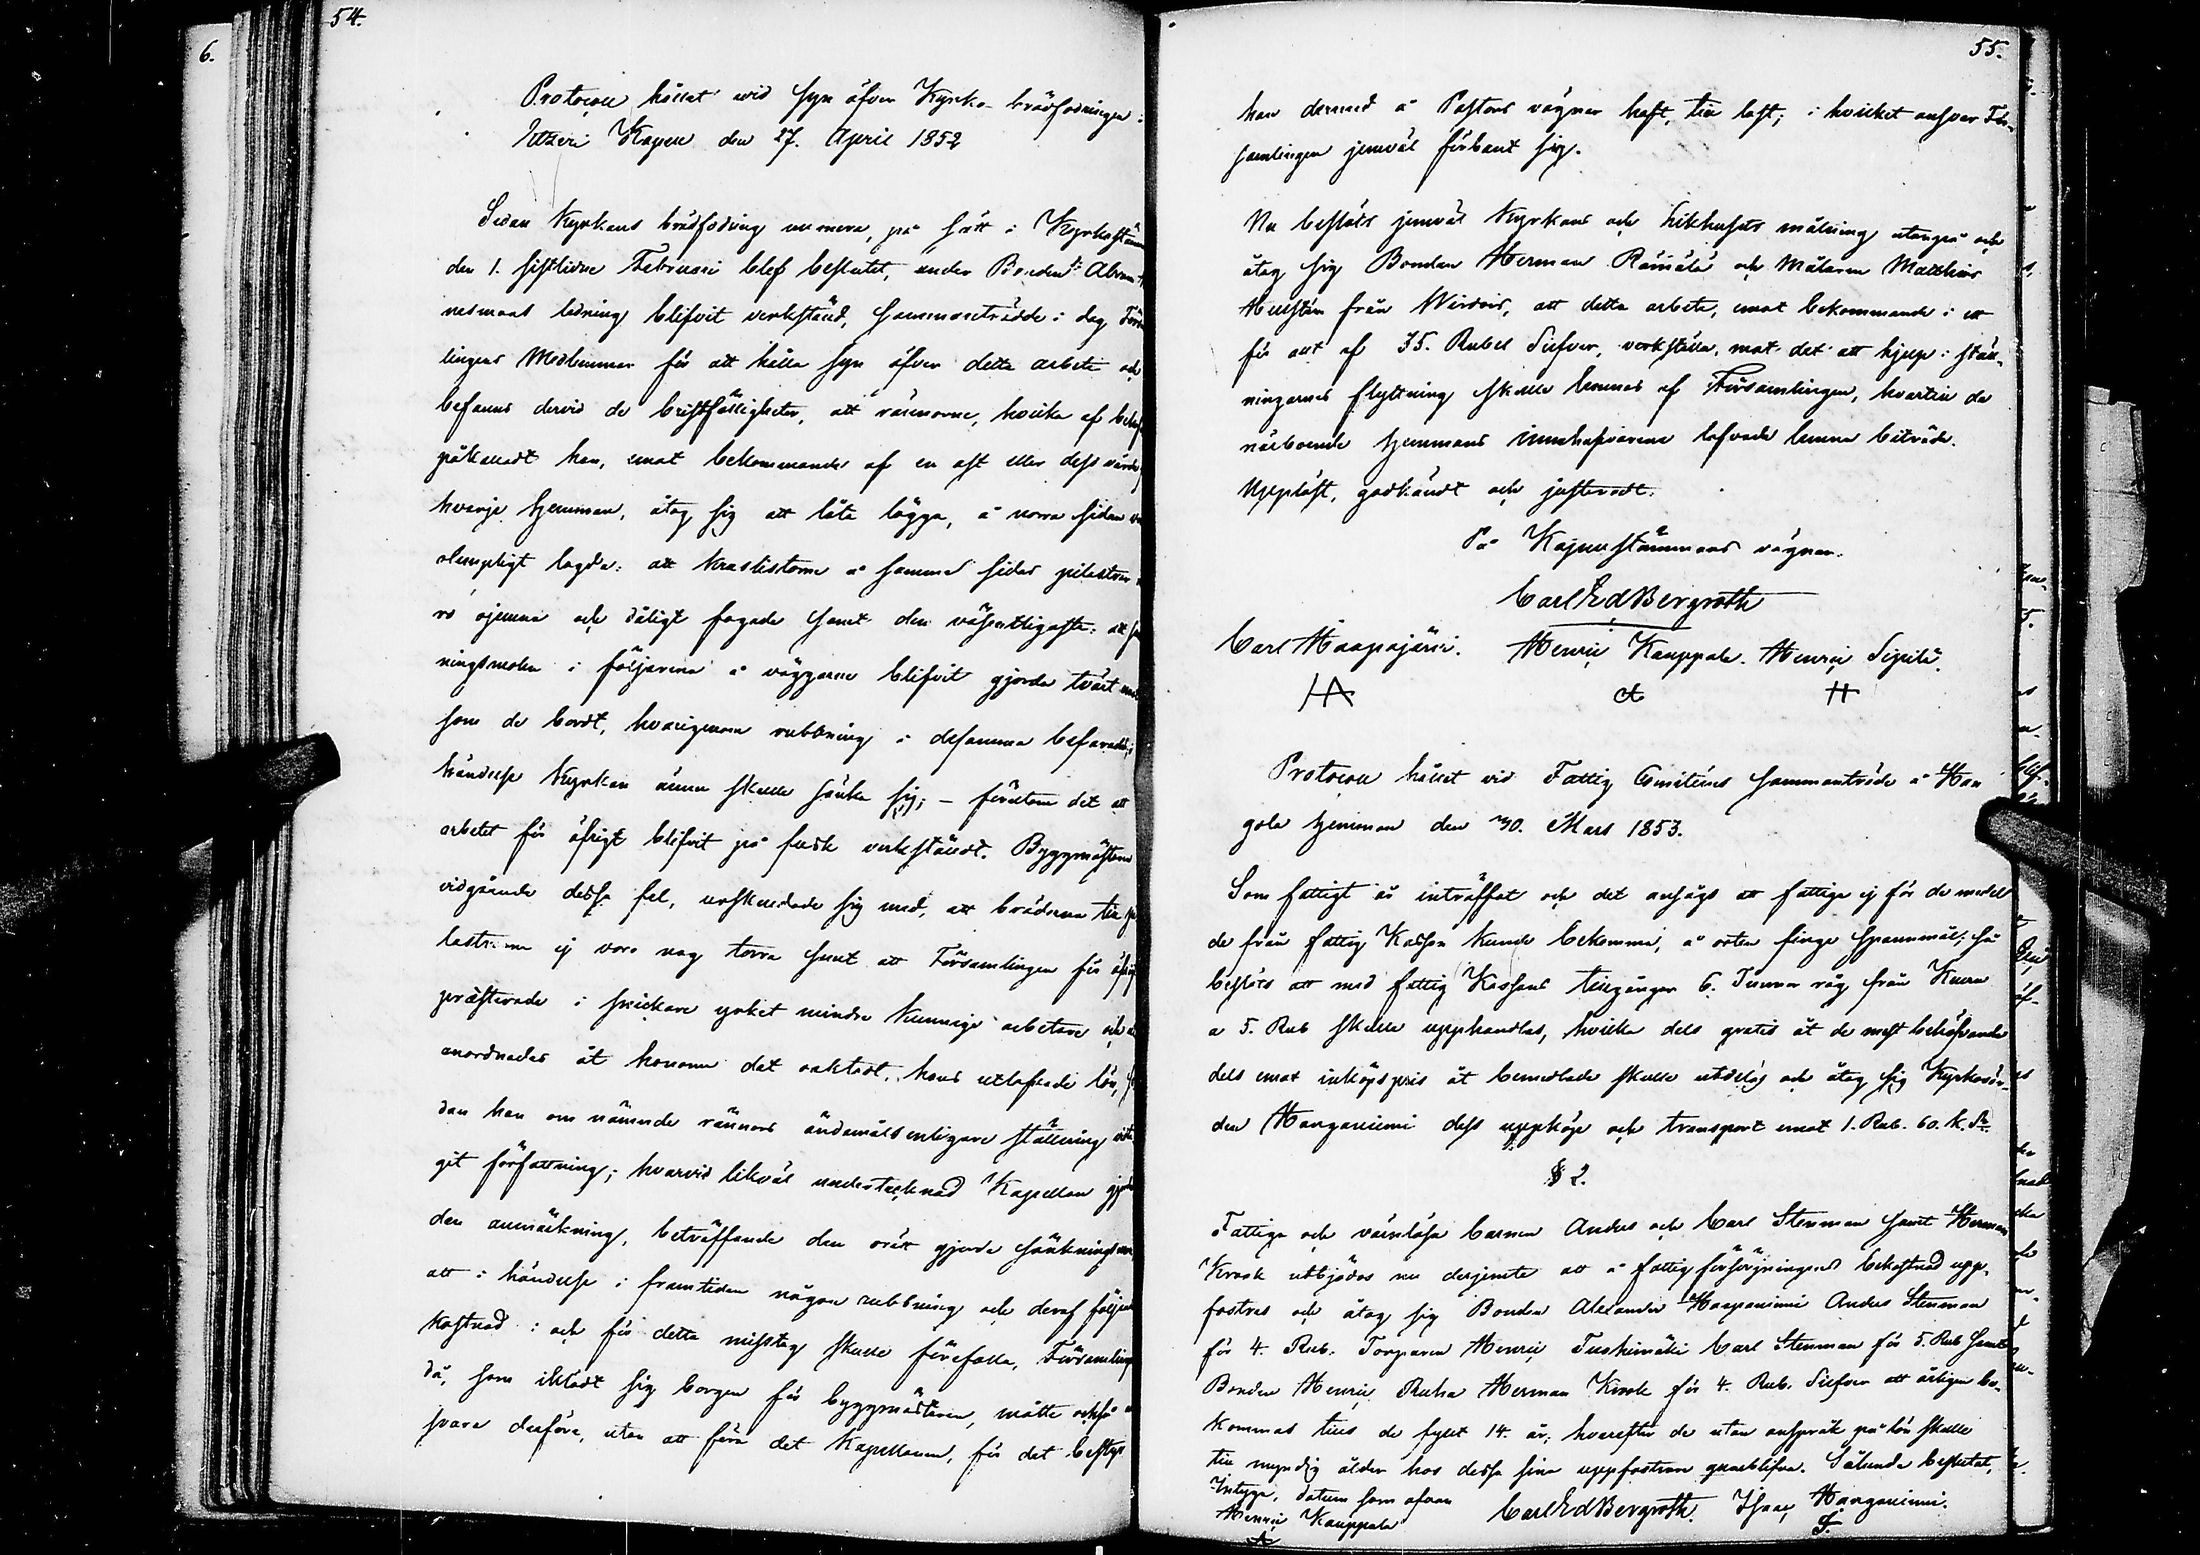 6.
54.
Protocoll hållet wid syn öfver Kyrko-brädfodringen i
Etzeri Kapell den 27. April 1852
Sedan Kyrkans brädfodring numera, på sätt i Kyrkostäm
den 1. sistlidne Februari blef beslutet, under Bonden
nesmaas ledning blifvit verkställd, sammanträdde i dag För
lingens Medlemmar för att hålla syn öfver detta arbete och
befanns dervid de bristfälligheter, att rännorne, hvilka af
påkalladt han, emot bekommande af en ost eller dess värde
hvarje hemman, åtog sig att låta lägga, å norra sidan
olempligt lagde: att kraslisterne å samma sidas pilastrar
ro ojemna och dåligt fogade samt den väsentligaste: att
ningsmolen i följarena å väggarne blifvit gjorde tvärt
som de bordt, hvarigenom rubbning i desamma befarades, i
händelse Kyrkan ännu skulle sänka sig; – förutom det att
arbetet för öfrigt blifvit på fusk verkställdt. Byggmästaren
vidgående dessa fel, urskuldade sig med, att bräderna till pi
lastrarna ej voro nog torra samt att Församlingen för öfrigt
presterade i snickare yrket mindre kunnige arbetare och
anordnades åt honom det oaktadt, hans utlofvade lön, se
dan han om nämnde rännors ändamålsenligare ställning
git författning; hvarvid likväl undertecknad Kapellan gjorde
den anmärkning, beträffande den orätt gjorde sänknings
att i händelse i framtiden någon rubbning och deraf följande
kostnad i och för detta misstag skulle förefalla, Församlingen
då, som iklädt sig borgen för byggmästaren, måtte också
svara derföre, utan att föra det Kapellanen, för det bestyr
55.
han dermed å Pastors vägnar haft, till last; i hvilket ansvar För-
samlingen jemväl förbant sig.
Nu beslöts jemväl Kyrkans och Likhusets målning utanpå och
åtog sig Bonden Herman Rämälä och Målaren Matthias
Hellstén från Wirdois, att detta arbete, emot bekommande i ett
för allt af 35. Rubel Silfver, verkställa, mot det att hjelp i ställ-
ningarnes flyttning skulle lemnas af Församlingen, hvartill de
närboende hemmans innehafvarena lofvade lemna biträde.
Uppläst, godkändt och justeradt.
På Kapellstämmans vägnar.
Carl Ed Bergroth
Carl Haapajärvi. Henric Kauppala. Henric Sipilä.
HA
H
Protocoll hållet vid Fattig Comitéens sammanträde å Han
gola hemman den 30. Mars 1853.
Som fattigt år inträffat och det ansågs att fattige ej för de medel
de från fattig Kassan kunde bekomma, å orten finge spannmål; så
beslöts att med fattig Kassans tillgångar 6. Tunnor råg från
a 5. Rub skulle upphandlas, hvilka dels gratis åt de mest behöfvande
dels emot inköpspris åt bemedlade skulle utdelas och åtog sig Kyrkovär-
den Hanganiemi dess uppköp och transport emot 1. Rub. 60. K. Sr.
§ 2.
Fattige och värnlösa barnen Anders och Carl Stenman samt Herman
Krook utbjödos nu derjemte att å fattigförsörjningens bekostnad upp-
fostras och åtog sig Bonden Alexander Haapaniemi Anders Stenman
för 4. Rub. Torparen Henric Tuskimäki Carl Stenman för 5. Rub samt
Bonden Henric Ruha Herman Krook för 4. Rub. Silfver att årligen be-
kommas tills de fyllt 14. år; hvarefter de utan anspråk på lön skulle
till myndig ålder hos dessa sina uppfostrare qvarblifva. Sålunda beslutat,
Intyga, datum som ofvan
Carl Ed Bergroth. Isaac Hanganiemi.
Henric Kauppala